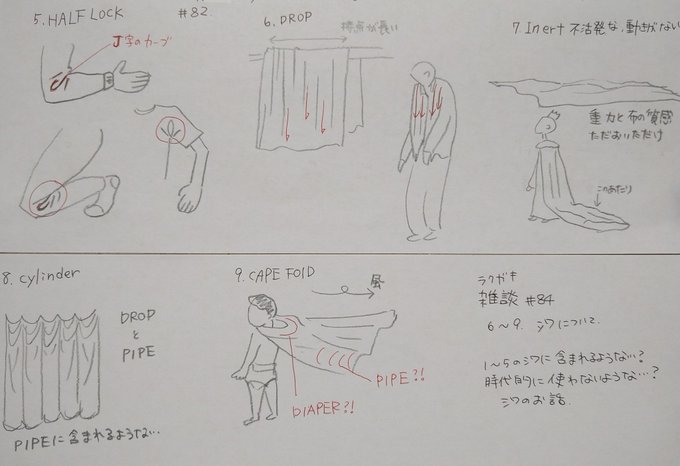 5. HALF LOCK
#82.
J字のカーブ
6. DROP
接点が長い
7. Inert 不活発な、動きがない
重力と布の質感
ただおいただけ
このあたり
8. cylinder
DROP
と
PIPE
PIPEに含まれるような…
9. CAPE FOlD
風
PIPE?!
DIAPER?!
ラクガキ
雑談 #84
6〜9. シワについて.
1〜5のシワに含まれるような…?
時代的に使わないような…?
シワのお話.